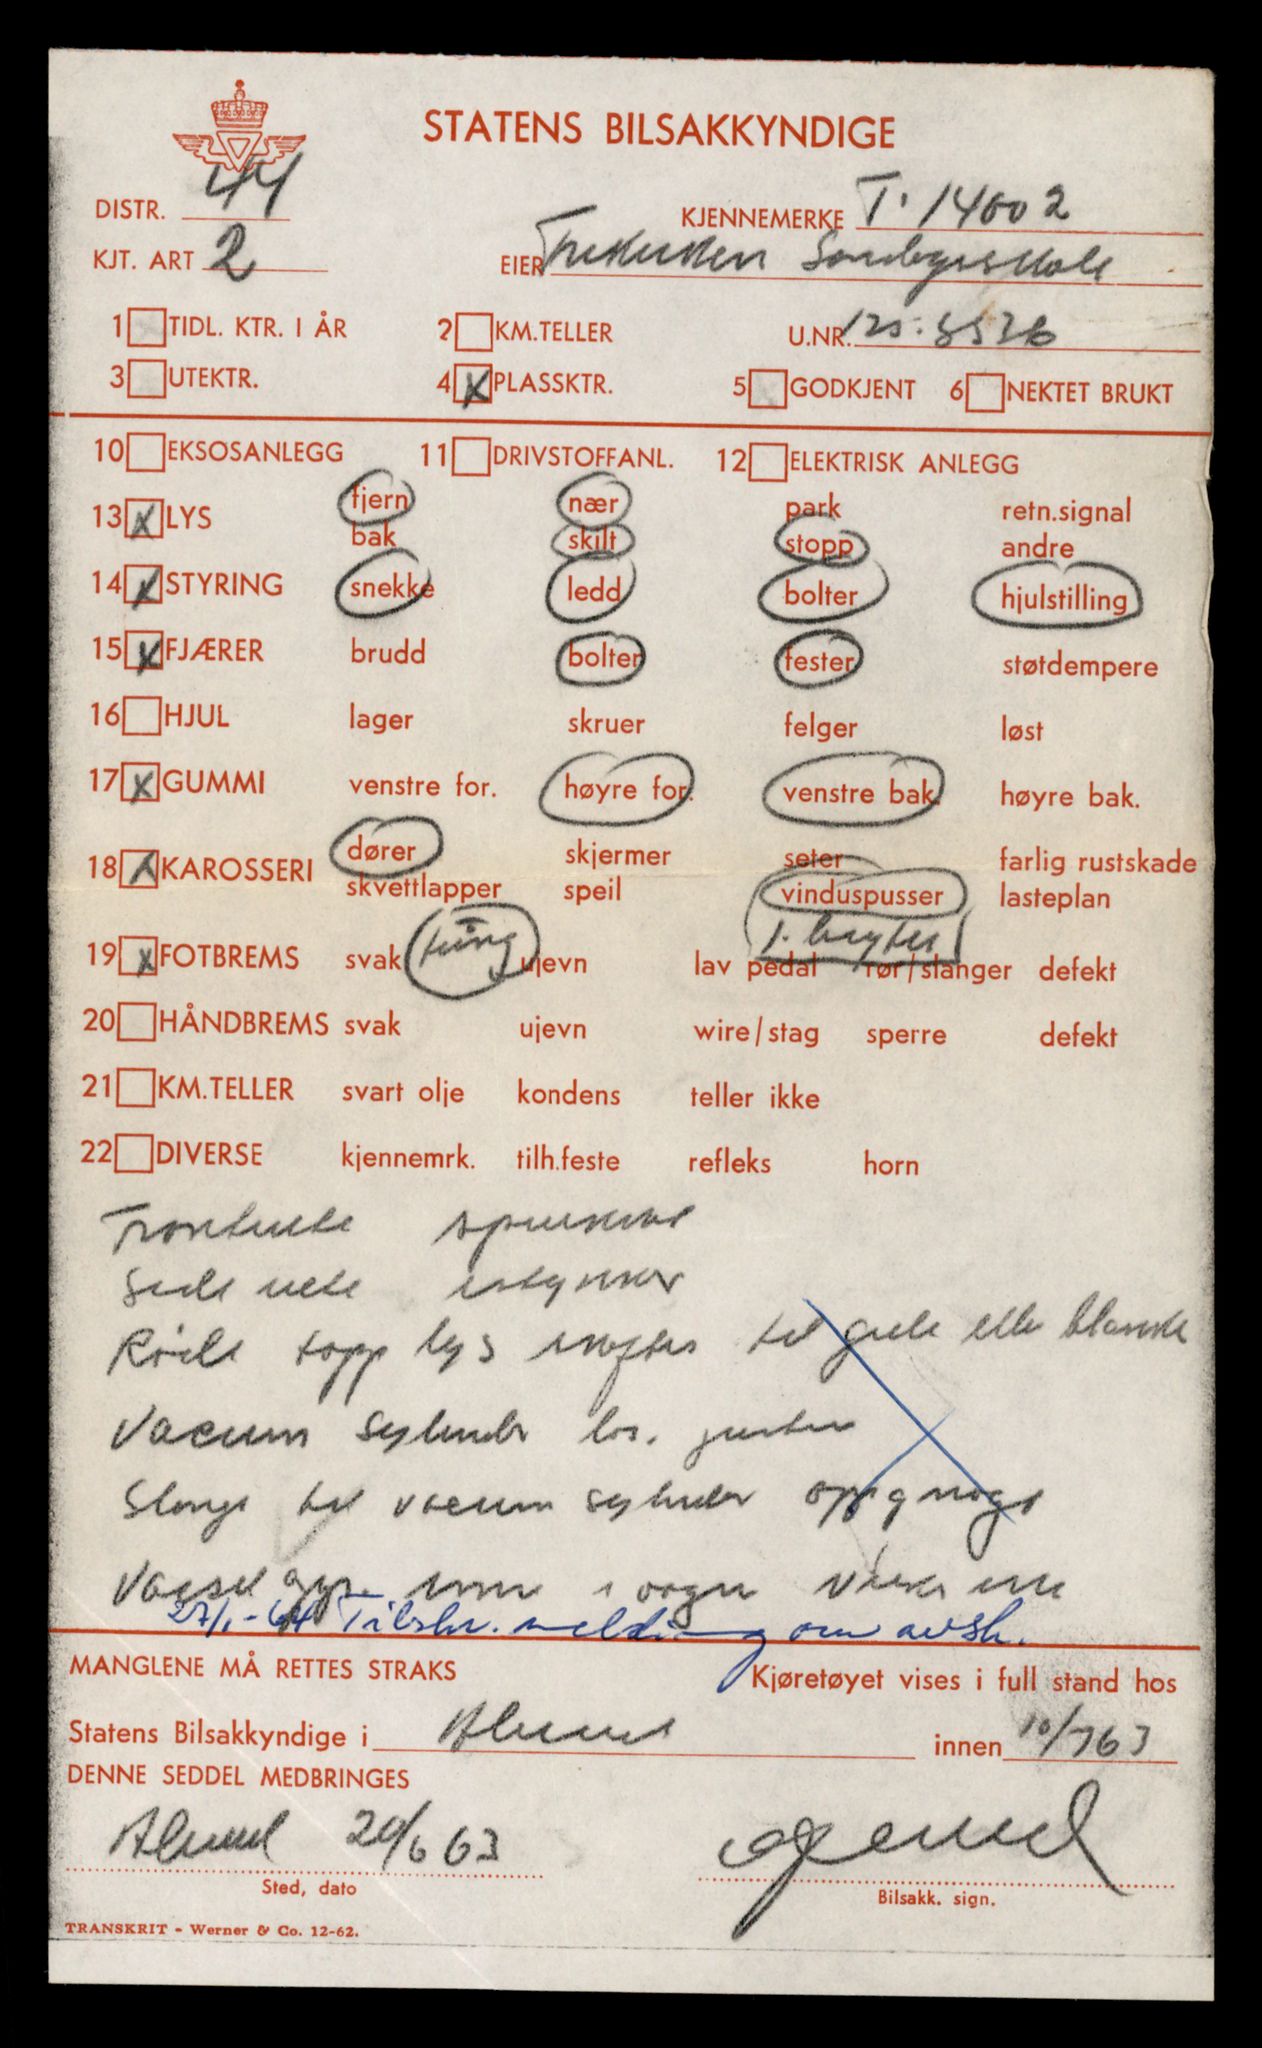 STATENS BILSAKKYNDIGE
DISTR. 44
KJENNEMERKE T. 14002
KJT. ART 2
EIER
1 TIDL. KTR. I ÅR 2 KM.TELLER U.NR.
3 UTEKTR. 4 X PLASSKTR. 5 GODKJENT 6 NEKTET BRUKT
10 EKSOSANLEGG 11 DRIVSTOFFANL. 12 ELEKTRISK ANLEGG
13 X LYS fjern nær park retn.signal
bak skilt stopp andre
14 X STYRING snekke ledd bolter hjulstilling
15 X FJÆRER brudd bolter fester støtdempere
16 HJUL lager skruer felger løst
17 X GUMMI venstre for. høyre for. venstre bak. høyre bak.
18 X KAROSSERI dører skjermer seter farlig rustskade
skvettlapper speil vinduspusser lasteplan
19 X FOTBREMS svak tung ujevn lav pedal rør/slanger defekt
20 HÅNDBREMS svak ujevn wire/stag sperre defekt
21 KM.TELLER svart olje kondens teller ikke
22 DIVERSE kjennemrk. tilh.feste refleks horn
Frontrute
Side rute
Røde topp lys skiftes til gule eller blanke
Vacum sylinder løs.
Slange til vacum sylinder oppgnagd
27/1-64 Tilskr. melding om avsk.
MANGLENE MÅ RETTES STRAKS Kjøretøyet vises i full stand hos
Statens Bilsakkyndige i Ålesund innen 10/7 63
DENNE SEDDEL MEDBRINGES
Ålesund 20/6 63
Sted, dato Bilsakk. sign.
TRANSKRIT - Werner & Co. 12-62.